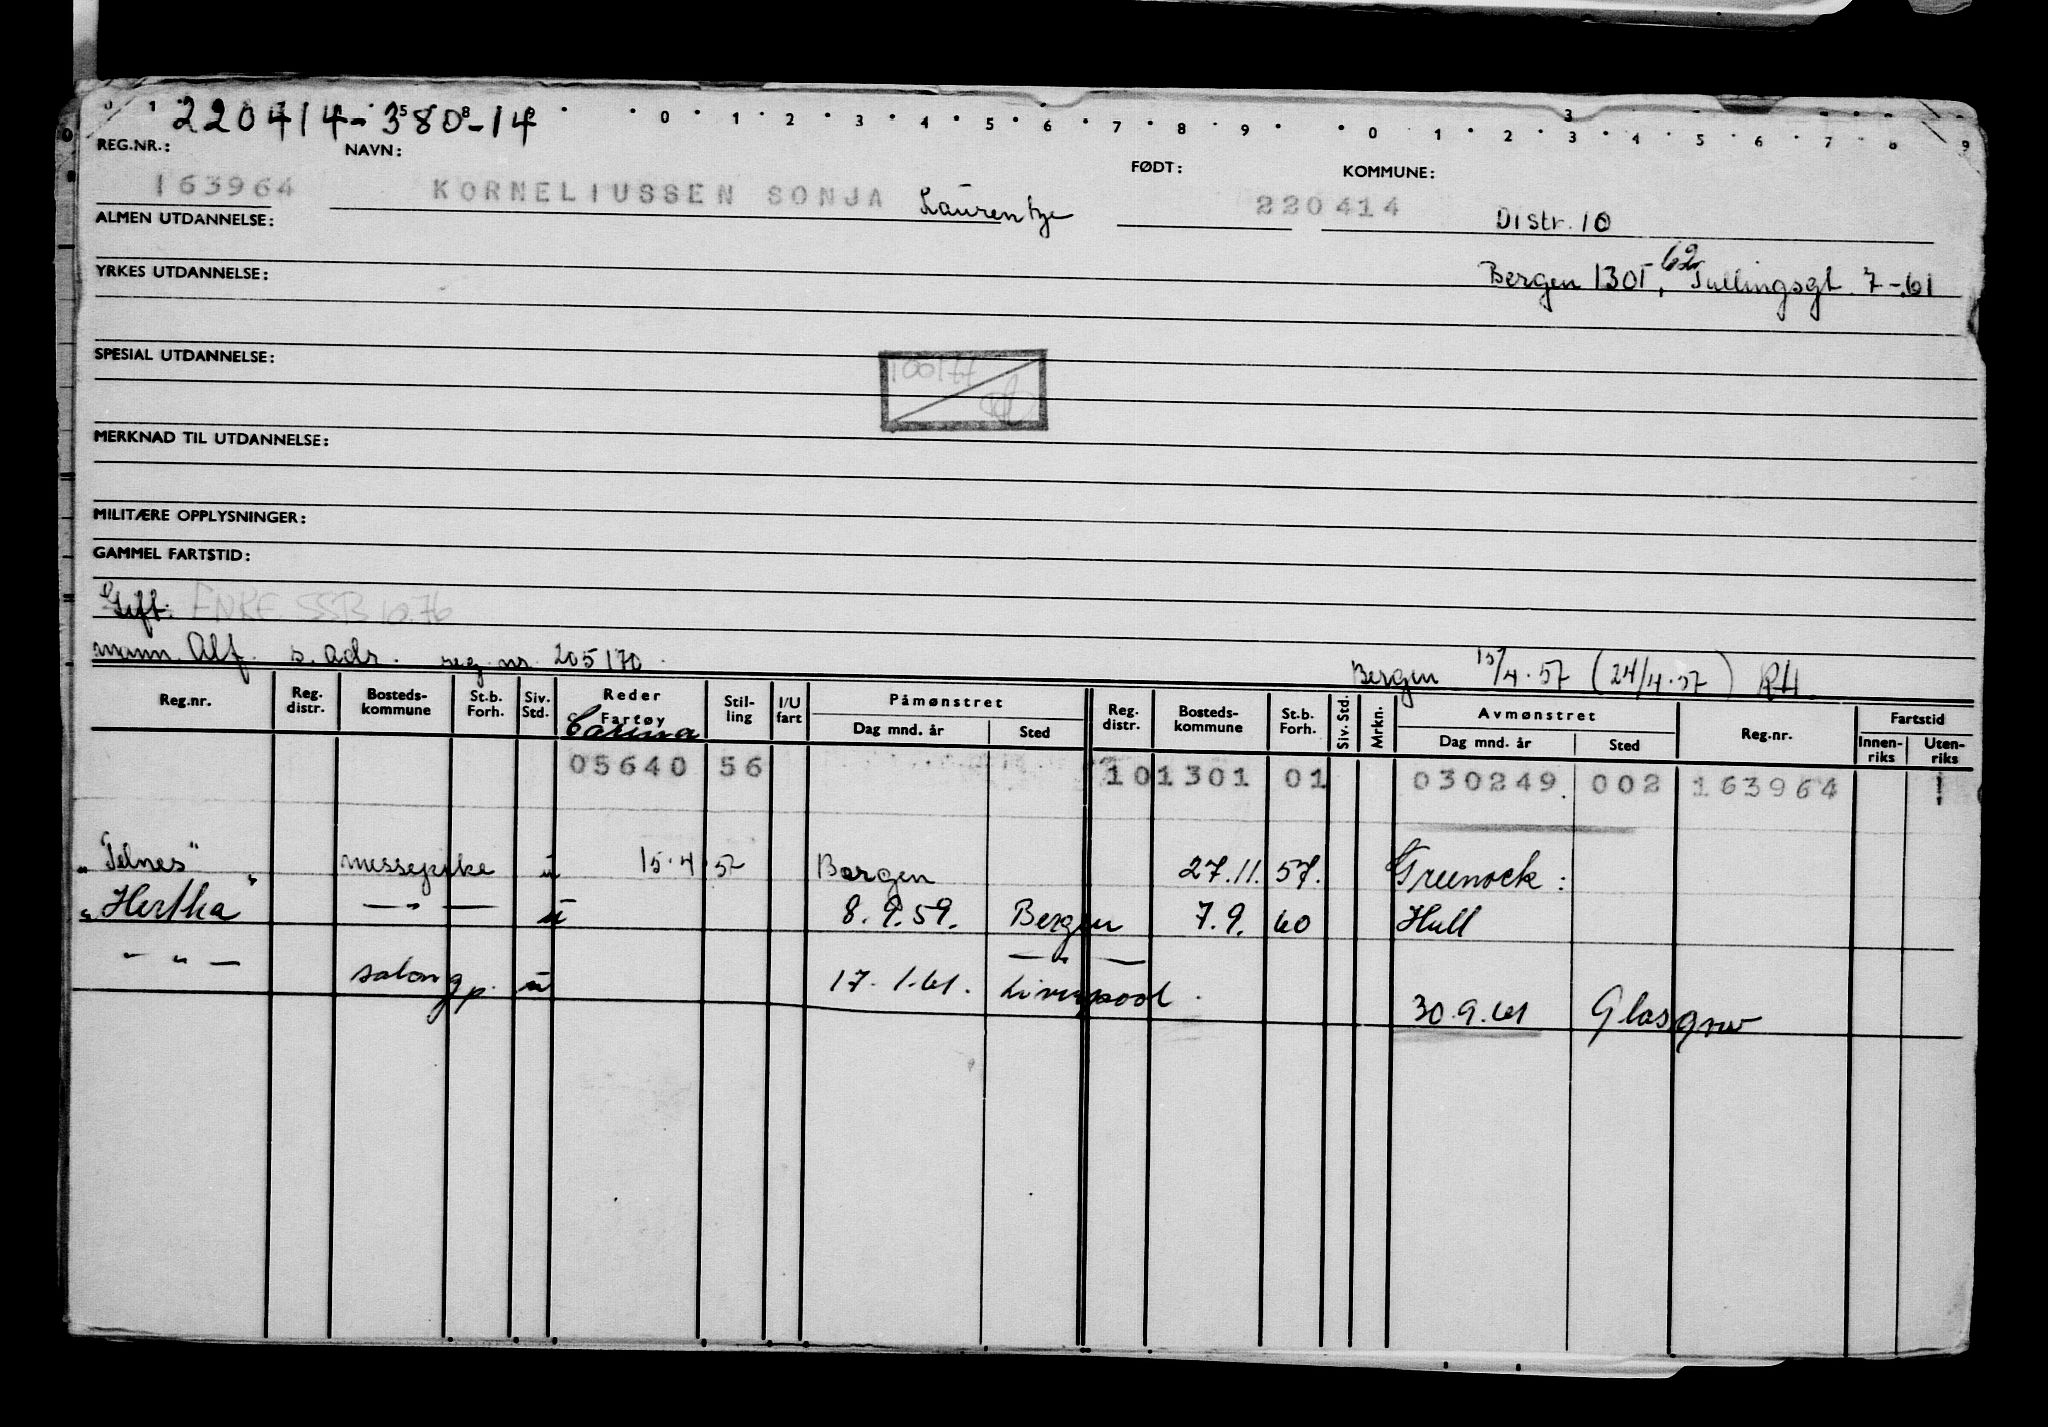 220414-35808-14
0 1 0 1 2 3 4 5 6 7 8 9 0 1 2 3 4 5 6 7 8 9
3
REG.NR.: NAVN: FØDT: KOMMUNE:
163964 KORNELIUSSEN SONJA Laurentze 220414 Distr. 10
ALMEN UTDANNELSE:
YRKES UTDANNELSE: Bergen 1301, 62 Tullingsgt. 7-61
SPESIAL UTDANNELSE:
100177
MERKNAD TIL UTDANNELSE:
MILITÆRE OPPLYSNINGER:
GAMMEL FARTSTID:
Gift. ENKE SSB 10.76
mann. Alf. s. adr. reg. nr. 205170. Bergen 15/4.57 (24/4.57) RH
Reg.nr. Reg. distr. Bosteds-kommune St.b. Forh. Siv. Std. Reder Fartøy Stil-ling I/U fart Påmønstret Dag mnd. år Sted Reg. distr. Bosteds-kommune St.b. Forh. Siv. Std. Mrkn. Avmønstret Dag mnd. år Sted Reg.nr. Fartstid Innen-riks Uten-riks
05640 56 101301 01 030249 002 163964
"Telnes" messepike u 15.4 57 Bergen 27.11.57. Greenock:
"Hertha" — " — u 8.9.59. Bergen 7.9.60 Hull
— " — salongp. u 17.1.61. — " — Liverpool 30.9.61 Glasgow